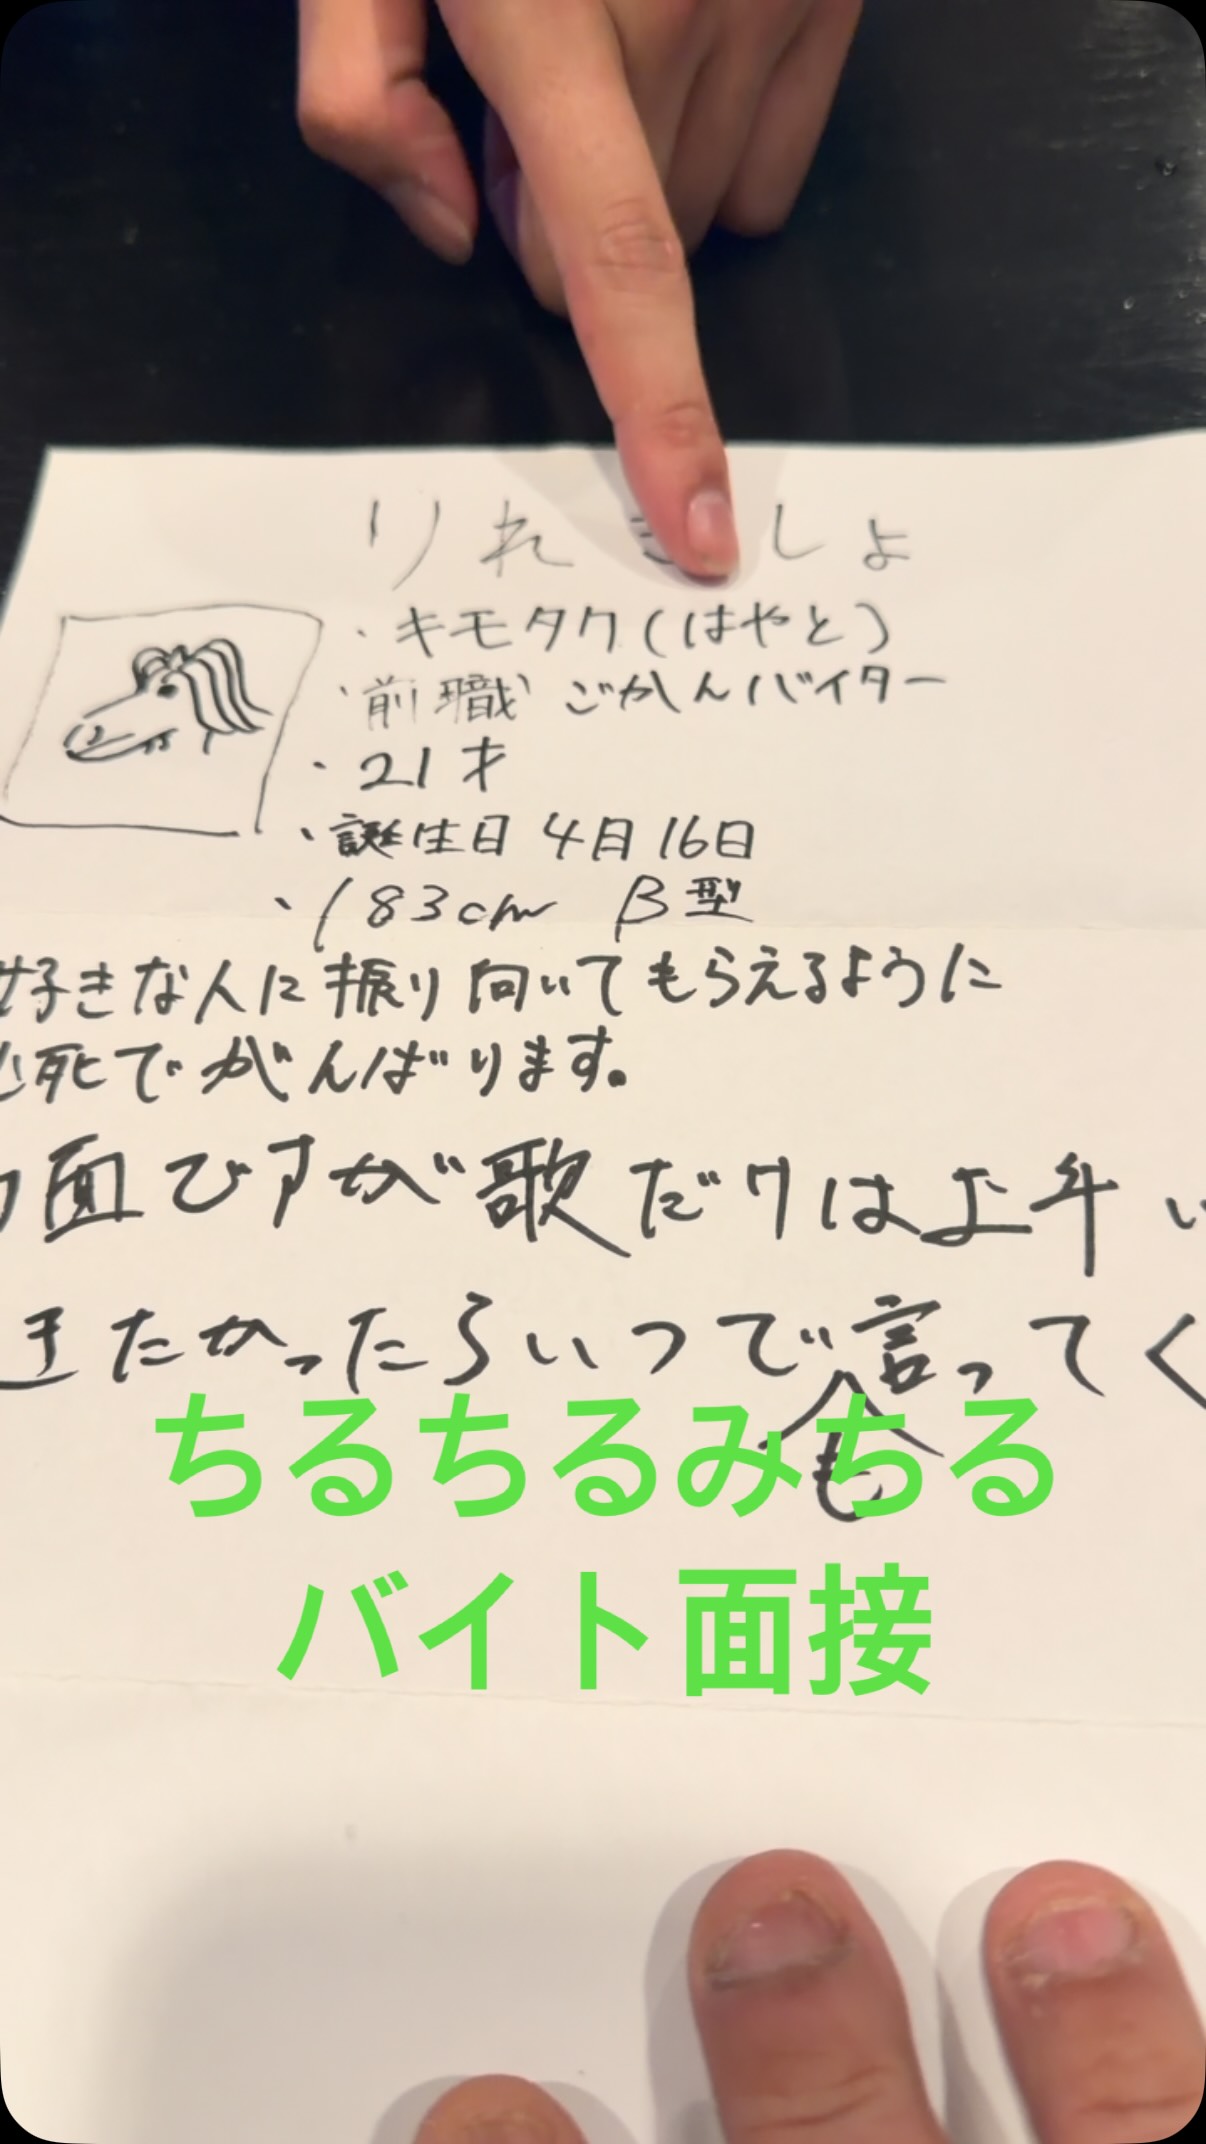 りれきしょ
・キモタク(はやと)
・前職 ごかんバイター
・21才
・誕生日 4月16日
・183cm B型
好きな人に振り向いてもらえるように
必死でがんばります。
面ですが歌だけは上手い
きたかったらいつで言ってく
も
ちるちるみちる
バイト面接